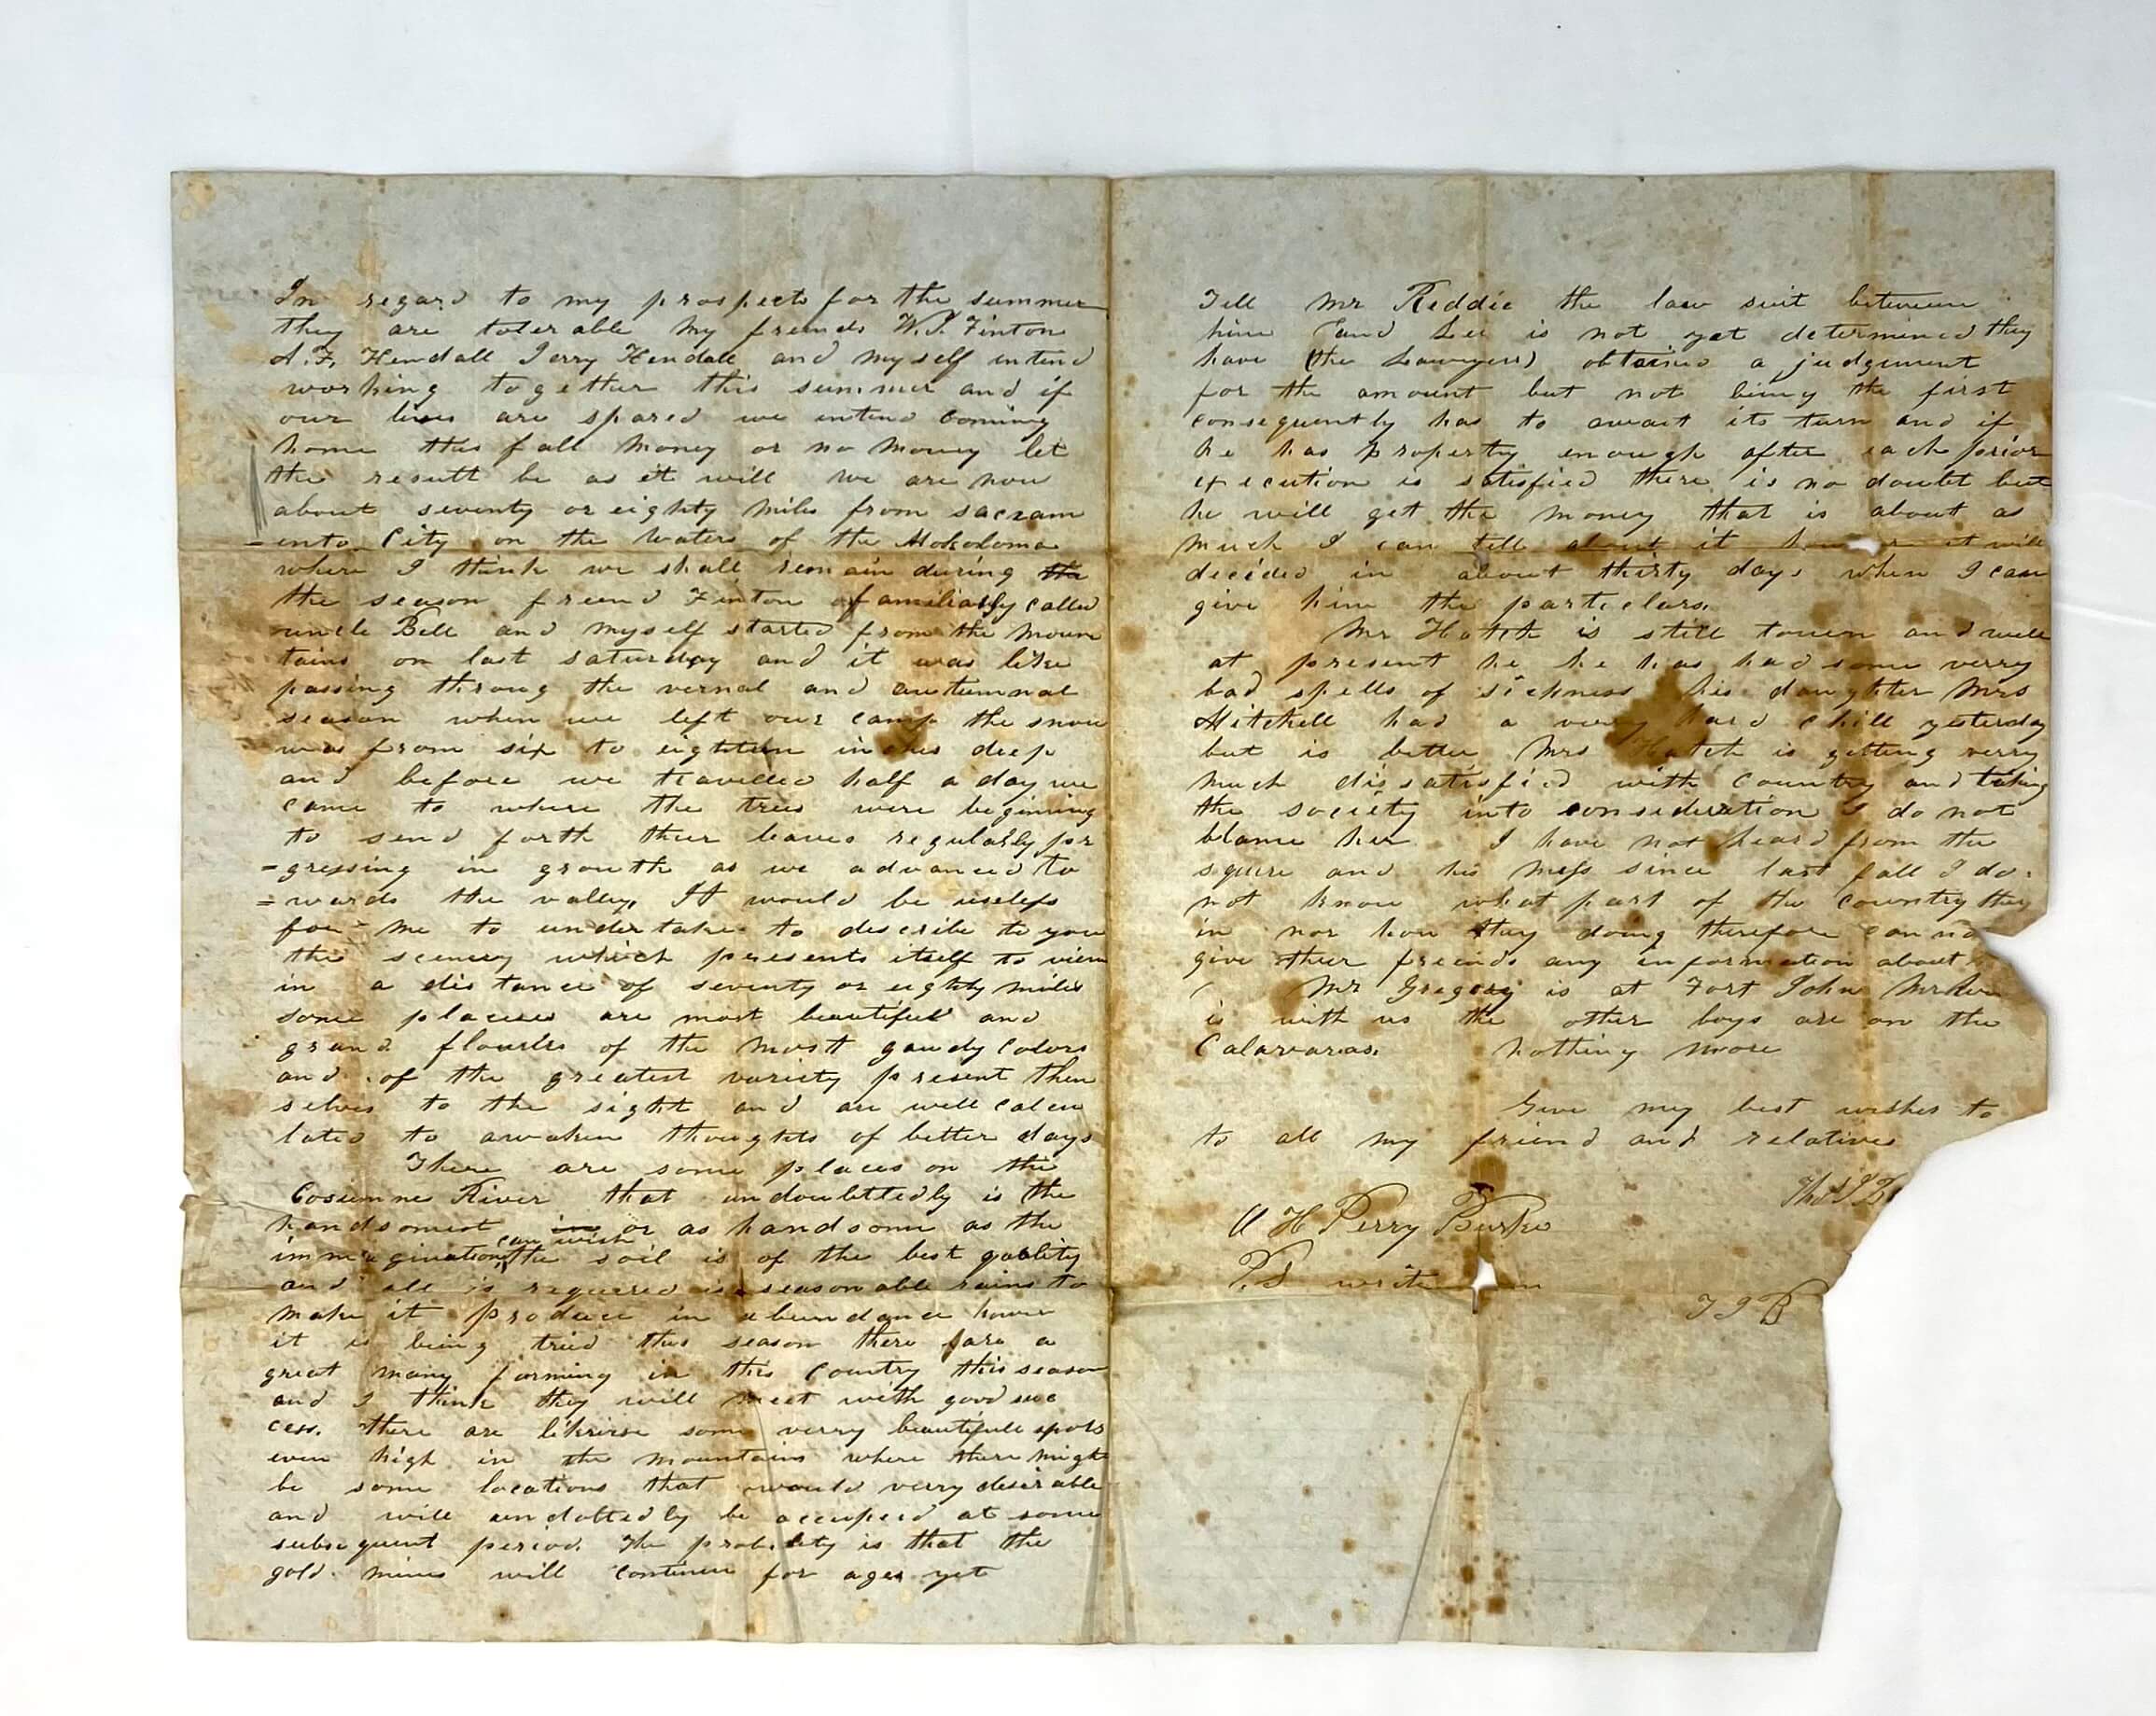 In regard to my prospects for the summer
they are tolerable My freinds W. S. Finton
A. F. Hendall Jerry Hendall and myself intend
working together this summer and if
our lives are spared we intend coming
home this fall money or no money let
the result be as it will we are now
about seventy or eighty miles from sacram
-ento City on the waters of the Mokoloma
where I think we shall remain during the
the season freind Finton familiarly called
uncle Bell and myself started from the moun
tains on last saturday and it was like
passing throug the vernal and autumnal
season when we left our camp the snow
was from six to eighteen inches deep
and before we travelled half a day we
came to where the trees were beginning
to send forth their leaves regularly pro
=gressing in growth as we advanced to
=wards the valley, It would be useless
for me to undertake to describe to you
the scenery which presents itself to view
in a distance of seventy or eighty miles
some places are most beautiful and
grand flowers of the most gaudy colors
and of the greatest variety present them
selves to the sight and are well calcu
lated to awaken thoughts of better days
There are some places on the
Cosumne River that undoubttedly is the
handsomest in or as handsome as the
immagination can wish the soil is of the best quality
and all is required is seasonable rains to
make it produce in abundance hower
it is being tried this season there are a
great many farming in this country this season
and I think they will meet with good suc
cess. there are likwise some verry beautifull spots
even high in the mountains where there might
be some locations that would verry desirable
and will undottedly be occupied at some
subsequent period. The probility is that the
gold mines will continue for ages yet
Tell Mr Reddie the law suit between
him and Lee is not yet determined they
have (the Lawyers) obtained a judgement
for the amount but not being the first
consequently has to await its turn and if
he has property enough after each prior
execution is satisfied there is no doubt but
he will get the money that is about as
much I can tell about it it will
decided in about thirty days when I can
give him the particlars.
Mr Hatch is still town and well
at present he he has had some verry
bad spells of sickness his daughter Mrs
Mitchell had a very hard chill yesterday
but is better Mrs Hatch is getting verry
much dissatisfied with country and taking
the society into consideration I do not
blame her I have not heard from the
squire and his mess since last fall I do
not know what part of the country they
in nor how they doing therefore can no
give their freinds any information about
Mr Gregory is at Fort John Mr
is with us the other boys are on the
Calavaras. Nothing more
Give my best wishes to
to all my friend and relatives
Thos J B
A H Perry Burke
P.S write
T J B